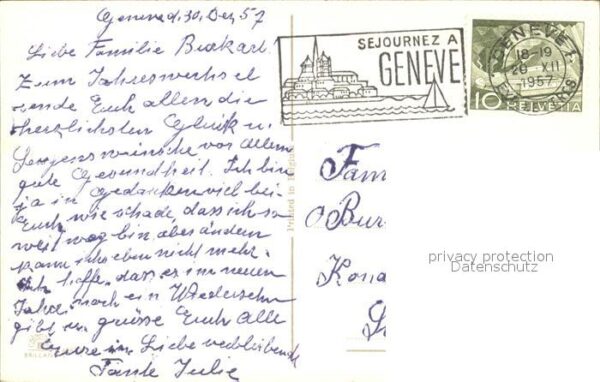 Geneve d. 30. Dez 57
Liebe Familie Burkart.
Zum Jahreswechsel
sende Euch allen die
herzlichsten Glük u.
Segenswünsche vor Allem
gute Gesundheit. Ich bin
ja in Gedanken viel bei
Euch, wie schade, dass ich so
weit weg bin, aber ändern
kann ich eben nicht mehr.
Ich hoffe, dass es im neuen
Jahre noch ein Wiedersehn
gibt u. grüsse Euch Alle
Eure in Liebe verbleibende
Tante Julie
SEJOURNEZ A
GENEVE
GENEVE 1
18-19
XII
1957
10 HELVETIA
Printed in Belgium
Fam
Bur
Kona
privacy protection
Datenschutz